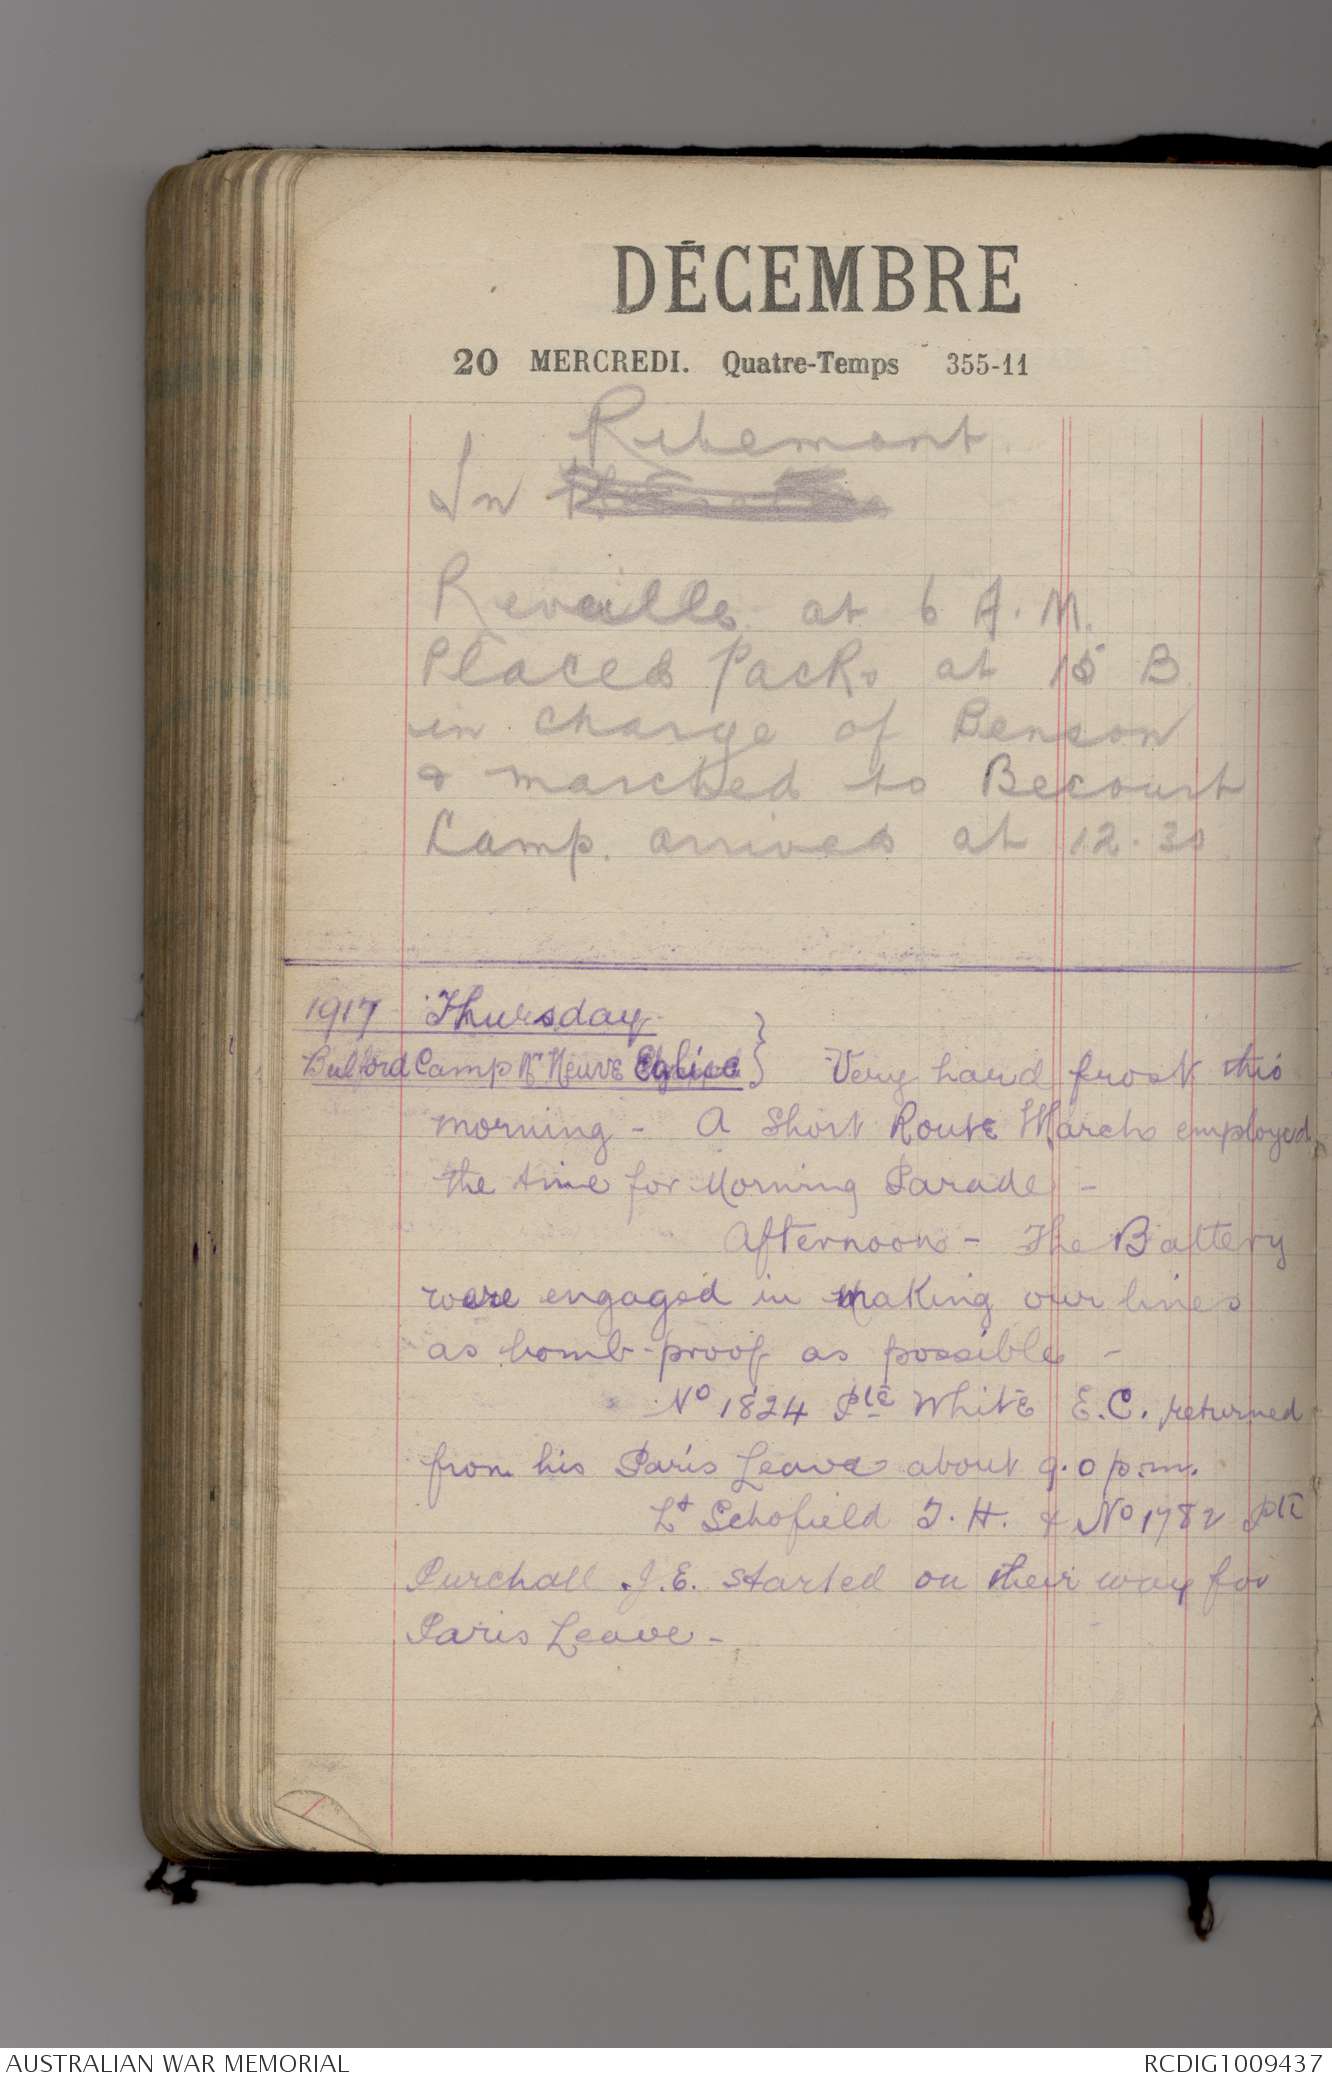 DÉCEMBRE
20 MERCREDI. Quatre-Temps 355-11
Ribemont
In
Reveille at 6 A.M.
Placed Packs at 15 B
in charge of Benson
& marched to Becourt
Camp. arrived at 12.30
1917 Thursday
Bulford Camp Nr Neuve Eglise } Very hard frost this
morning - A Short Route March employed
the time for Morning Parade -
Afternoon - The Battery
were engaged in making our lines
as bomb-proof as possible -
No 1824 Pte White E.C. returned
from his Paris Leave about 9.0 p.m.
Lt Schofield T.H. & No 1782 Pte
Purchall J.E. started on their way for
Paris Leave -
AUSTRALIAN WAR MEMORIAL
RCDIG1009437